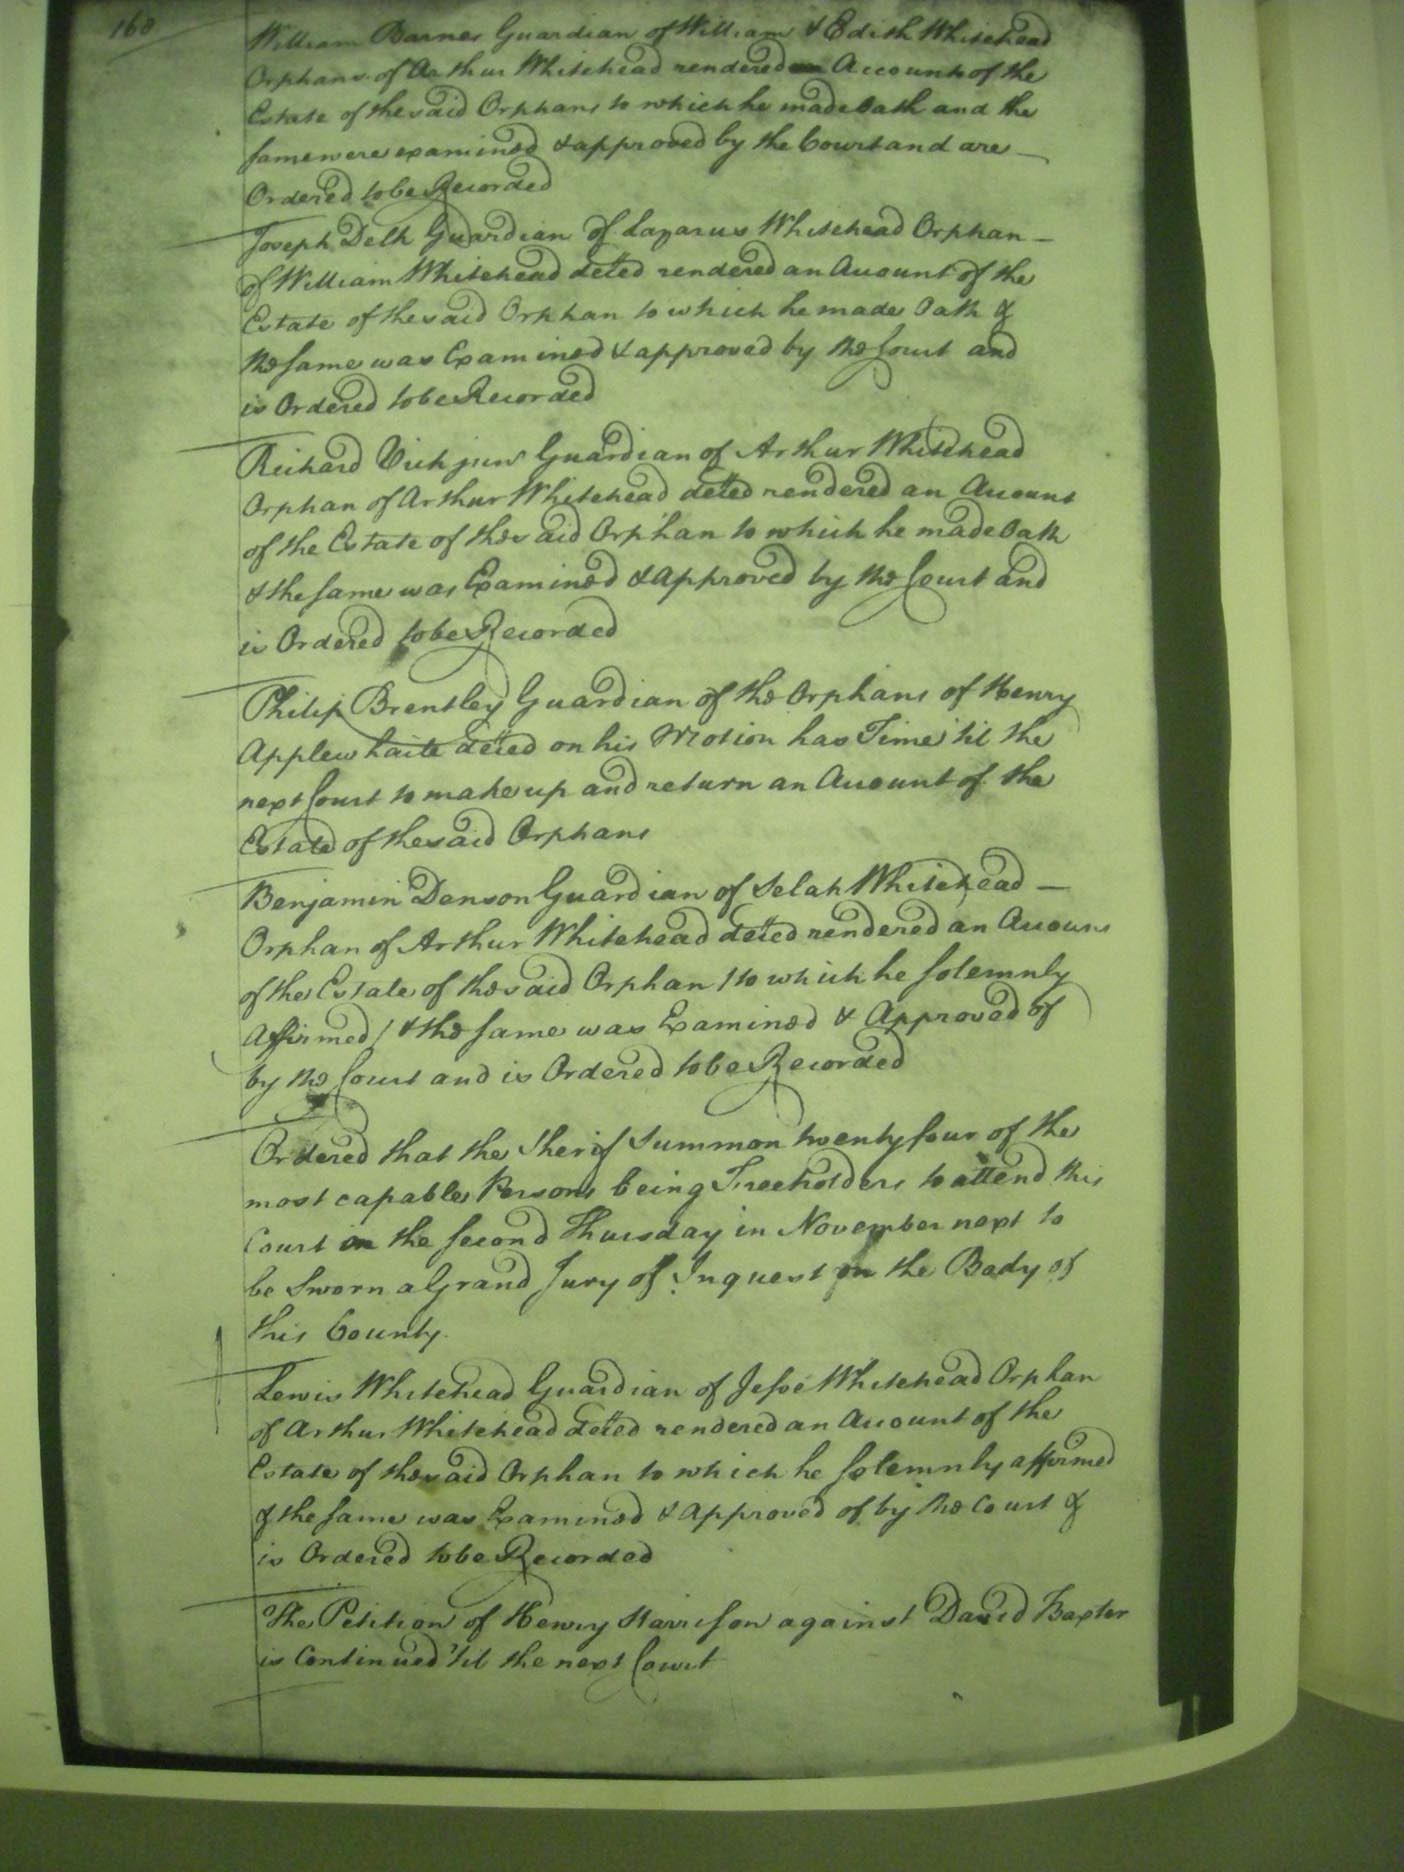 168
William Barnes Guardian of William & Edith Whitehead
Orphans of Arthur Whitehead rendered Accounts of the
Estate of the said Orphans to which he made Oath and the
same were examined & approved by the Court and are
Ordered to be Recorded
Joseph Delk Guardian of Lazarus Whitehead Orphan
of William Whitehead deced rendered an Account of the
Estate of the said Orphan to which he made Oath &
the same was Examined & approved by the Court and
is Ordered to be Recorded
Richard Vick junr Guardian of Arthur Whitehead
Orphan of Arthur Whitehead deced rendered an Account
of the Estate of the said Orphan to which he made Oath
& the same was Examined & Approved by the Court and
is Ordered to be Recorded
Philip Brentley Guardian of the Orphans of Henry
Applewhaite deced on his Motion has Time 'til the
next Court to make up and return an Account of the
Estate of the said Orphans
Benjamin Denson Guardian of Selah Whitehead
Orphan of Arthur Whitehead deced rendered an Account
of the Estate of the said Orphan (to which he solemnly
Affirmed) & the same was Examined & Approved of
by the Court and is Ordered to be Recorded
Ordered that the Sherif Summon twenty four of the
most capable Persons being Freeholders to attend this
Court on the second Thursday in November next to
be Sworn a Grand Jury of Inquest on the Body of
this County.
Lewis Whitehead Guardian of Jesse Whitehead Orphan
of Arthur Whitehead deced rendered an Account of the
Estate of the said Orphan to which he solemnly affirmed
& the same was Examined & approved of by the Court &
is Ordered to be Recorded
The Petition of Henry Harrison against David Baxter
is Continued 'til the next Court